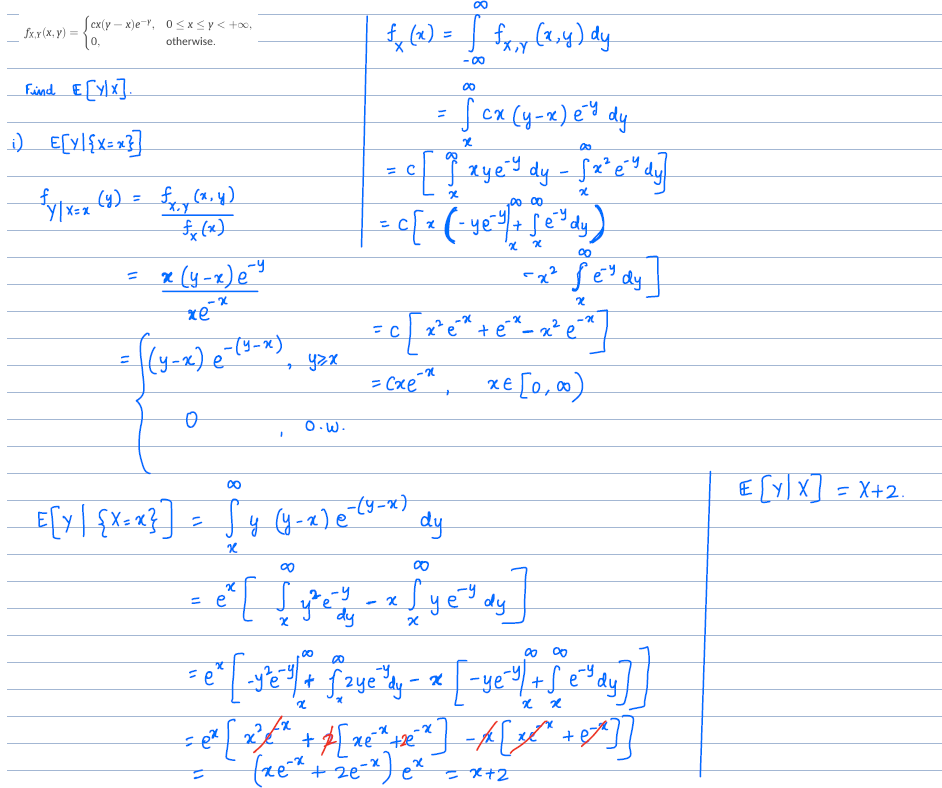 f_{X,Y}(x, y) = { cx(y − x)e^{−y}, 0 ≤ x ≤ y < +∞,
0, otherwise.
Find E[Y|X].
i) E[Y|{X=x}]
f_{Y|X=x}(y) = f_{X,Y}(x,y) / f_X(x)
= x(y-x)e^{-y} / xe^{-x}
= { (y-x) e^{-(y-x)}, y≥x
0 , o.w.
f_X(x) = ∫_{-∞}^{∞} f_{X,Y}(x,y) dy
= ∫_x^∞ cx (y-x) e^{-y} dy
= c [ ∫_x^∞ xye^{-y} dy - ∫_x^∞ x² e^{-y} dy ]
= c [ x ( -ye^{-y} |_x^∞ + ∫_x^∞ e^{-y} dy )
- x² ∫_x^∞ e^{-y} dy ]
= c [ x² e^{-x} + e^{-x} - x² e^{-x} ]
= cxe^{-x} , x∈[0,∞)
E[Y|{X=x}] = ∫_x^∞ y (y-x) e^{-(y-x)} dy
= e^x [ ∫_x^∞ y² e^{-y} dy - x ∫_x^∞ y e^{-y} dy ]
= e^x [ -y²e^{-y} |_x^∞ + ∫_x^∞ 2ye^{-y} dy - x [ -ye^{-y} |_x^∞ + ∫_x^∞ e^{-y} dy ] ]
= e^x [ x²e^{-x} + 2[ xe^{-x} + 2e^{-x} ] - x [ xe^{-x} + e^{-x} ] ]
= (xe^{-x} + 2e^{-x}) e^x = x+2
E[Y|X] = X+2.